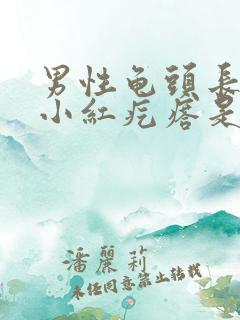 男性龟頭長
小紅疙瘩是
潘麗莉
未經同意禁止轉載